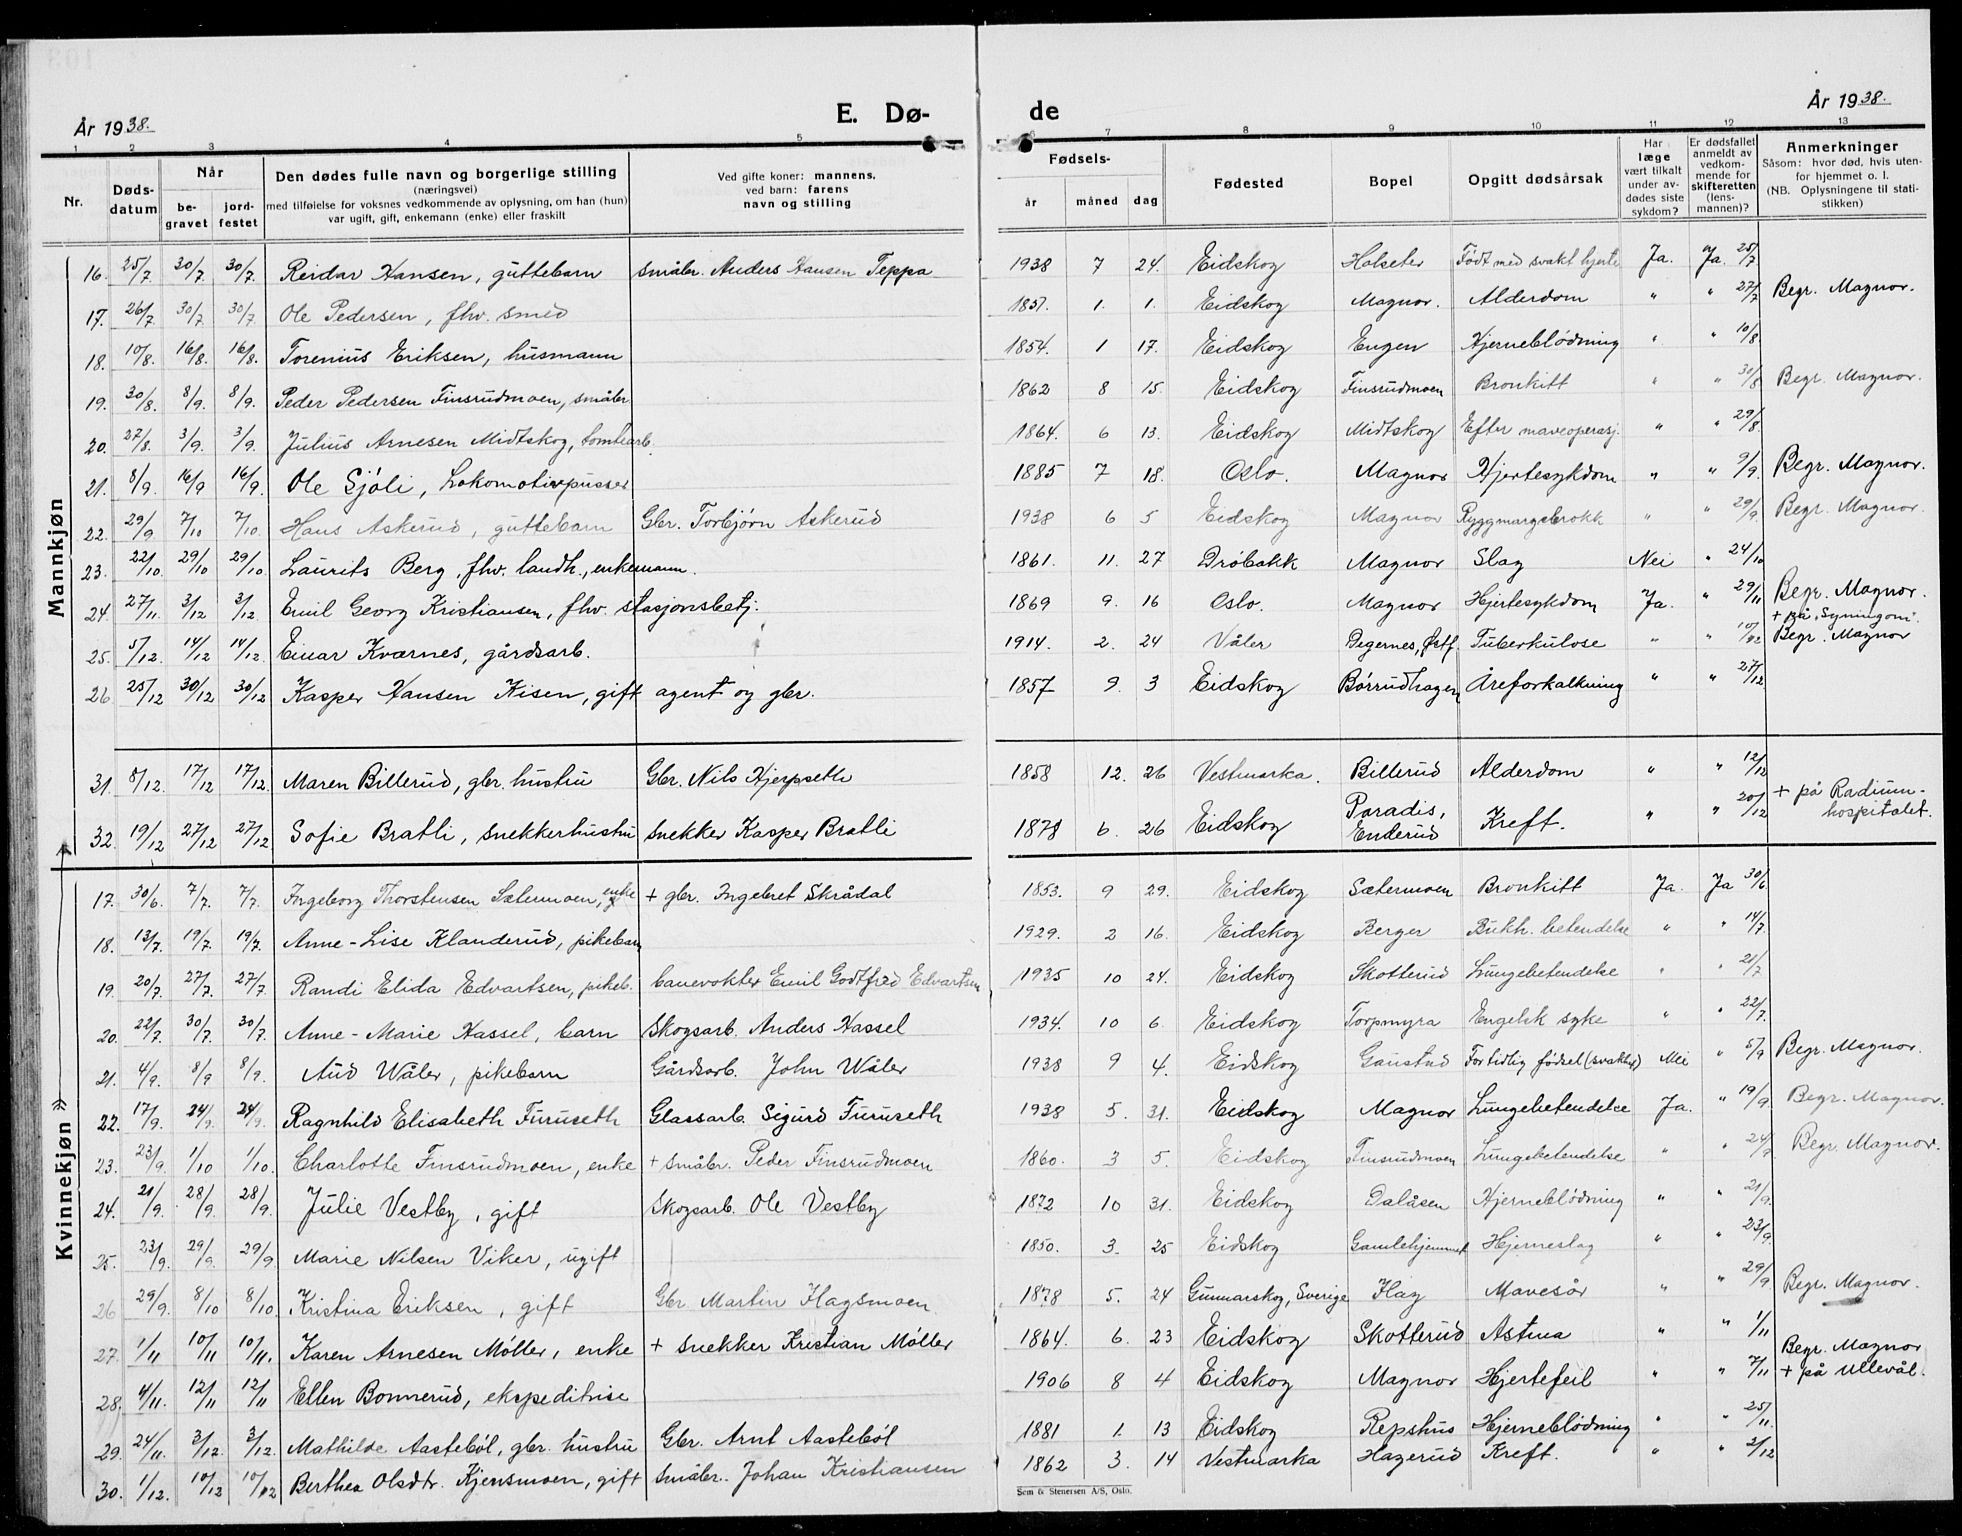 År 1938.
E. Dø-
de
År 1938.
1 2 3 4 5 6 7 8 9 10 11 12 13
Nr.
Døds-
datum
Når
be-
gravet
jord-
festet
Den dødes fulle navn og borgerlige stilling
(næringsvei)
med tilføielse for voksnes vedkommende av oplysning, om han (hun)
var ugift, gift, enkemann (enke) eller fraskilt
Ved gifte koner: mannens,
ved barn: farens
navn og stilling
Fødsels-
år måned dag
Fødested
Bopel
Opgitt dødsårsak
Har
læge
vært tilkalt
under av-
dødes siste
sykdom?
Er dødsfallet
anmeldt av
vedkom-
mende for
skifteretten
(lens-
mannen)?
Anmerkninger
Såsom: hvor død, hvis uten-
for hjemmet o. l.
(NB. Oplysningene til stati-
stikken)
Mannkjøn
16. 25/7 30/7. 30/7. Reidar Hansen, guttebarn småbr. Anders Hansen Teppa 1938 7 24. Eidskog Holseter Født med svakt hjerte Ja. Ja. 25/7
17. 26/7 30/7. 30/7. Ole Pedersen, fhv. smed 1851. 1. 1. Eidskog Magnor. Alderdom " " 27/7 Begr. Magnor.
18. 10/8. 16/8. 16/8. Torenius Eriksen, husmann 1854. 1 17. Eidskog Engen Hjerneblödning " " 10/8
19. 30/8. 8/9. 8/9. Peder Pedersen Finsrudmoen, småbr 1862 8 15. Eidskog Finsrudmoen Bronkitt " " 30/8 Begr. Magnor.
20. 27/8. 3/9. 3/9. Julius Arnesen Midtskog, tomtearb. 1864. 6 13. Eidskog Midtskog Efter maveoperasj. " " 29/8
21. 8/9. 16/9 16/9. Ole Sjöli, Lokomotivpusser 1885 7 18. Oslo. Magnor Hjertesykdom " " 9/9. Begr. Magnor.
22. 29/9 7/10 7/10. Hans Askerud, guttebarn Gbr. Torbjørn Askerud 1938 6 5 Eidskog Magnor Ryggmargsbrokk " " 29/9. Begr. Magnor.
23. 22/10. 29/10 29/10. Laurits Berg, fhv. landh., enkemann. 1861. 11. 27 Dröbakk Magnor Slag Nei " 24/10
24. 27/11. 3/12 3/12 Emil Georg Kristiansen, fhv. stasjonsbetj. 1869 9. 16 Oslo. Magnor Hjertesykdom Ja. " 29/11 Begr. Magnor.
25. 5/12. 14/12 14/12. Einar Kværnes, gårdsarb. 1914. 2. 24 Våler Degernes, Østf. Tuberkulose " " 10/12 Begr. Magnor
26. 25/12 30/12 30/12 Kasper Hansen Kisen, gift agent og gbr. 1857 9. 3 Eidskog Börrudhagen Åreforkalkning " " 27/12
31. 8/12. 17/12 17/12. Maren Billerud, gbr. hustru Gbr. Nils Hjerpseth 1858 12. 26 Vestmarka. Billerud Alderdom " " 12/12
32. 19/12 27/12 27/12 Sofie Bratli, snekkerhustru snekker Kasper Bratli 1878 6. 26 Eidskog Paradis, Enderud Kreft. " " 20/12 + på Radium-
hospitalet.
Kvinnekjøn
17. 30/6. 7/7. 7/7. Ingeborg Thorstensen Sætermoen, enke + gbr. Ingebret Skrådal 1853. 9 29. Eidskog Sætermoen Bronkitt Ja. Ja 30/6
18. 13/7. 19/7. 19/7. Anne-Lise Klanderud, pikebarn 1929. 2 16. Eidskog Berger Bukh. betendelse " " 14/7.
19. 20/7. 27/7. 27/7 Randi Elida Edvartsen, pikeb. banevokter Emil Godtfred Edvartsen 1935 10 24. Eidskog Skotterud Lungebetendelse " " 21/7
20. 22/7. 30/7. 30/7. Anne-Marie Hassel, barn Skogsarb. Anders Hassel 1934. 10 6. Eidskog Torpmyra Engelsk syke " " 22/7.
21. 4/9. 8/9 8/9. Aud Wåler, pikebarn Gårdsarb. John Wåler 1938 9 4. Eidskog Gaustad For tidlig fødsel (svakhet) Nei " 5/9 Begr. Magnor.
22. 17/9. 24/9. 24/9. Ragnhild Elisabeth Furuseth Glassarb. Sigurd Furuseth 1938 5. 31. Eidskog Magnor Lungebetendelse Ja. " 19/9 Begr. Magnor.
23. 23/9. 1/10 1/10. Charlotte Finsrudmoen, enke + småbr. Peder Finsrudmoen 1860. 3 5. Eidskog Finsrudmoen Lungebetendelse " " Begr. Magnor.
24. 21/9. 28/9 28/9. Julie Vestby, gift Skogsarb. Ole Vestby 1872 10 31. Eidskog Dalåsen Hjerneblödning " " 21/9.
25. 23/9. 29/9. 29/9 Marie Nilsen Viker, ugift 1850. 3. 25 Eidskog Gamlehjemmet Hjerneslag " " 23/9.
26 29/9. 8/10 8/10. Kristina Eriksen, gift Gbr Martin Hagsmoen 1878 5. 24 Gunnarskog, Sverige Hag Mavesår " " 29/9 Begr. Magnor.
27. 1/11 10/11 10/11. Karen Arnesen Møller, enke + snekker Kristian Møller 1864. 6. 23 Eidskog Skotterud Astma " " 1/11
28. 4/11. 12/11 12/11 Ellen Bonnerud, ekspeditrise 1906 8 4 Eidskog Magnor Hjertefeil " " 7/11 Begr. Magnor
+ på Ullevål.
29. 24/11. 3/12. 3/12. Mathilde Aastebøl, gbr. hustru Gbr. Arnt Aastebøl 1881 1. 13 Eidskog Repshus Hjerneblödning " " 25/11.
30. 1/12. 10/12 10/12 Berthea Olsdtr. Kjensmoen, gift Småbr. Johan Kristiansen 1862 3. 14 Vestmarka Hagerud Kreft. " " 2/12
Sem & Stenersen A/S, Oslo.